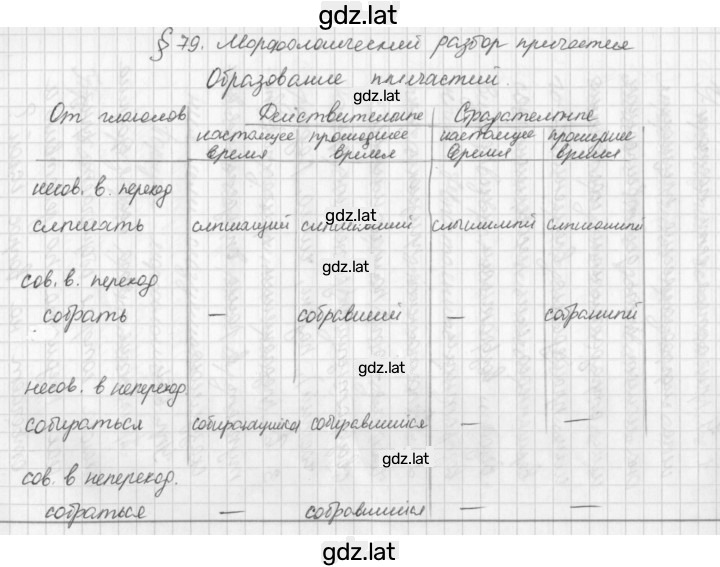 gdz.lat
§ 79. Морфологический разбор причастия
Образование причастий.
gdz.lat
От глаголов Действительные Страдательные
настоящее время прошедшее время настоящее время прошедшее время
несов. в. переход
gdz.lat
слышать слышащий слышавший слышимый слышанный
gdz.lat
сов. в. переход
собрать — собравший — собранный
gdz.lat
несов. в неперех��д
собираться собирающийся собиравшийся — —
gdz.lat
сов. в неперекод.
собраться — собравшийся — —
gdz.lat